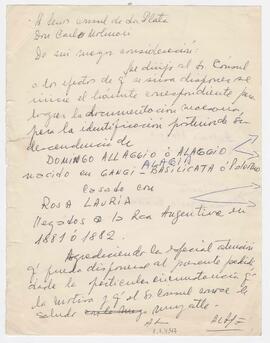 A Señor Consul de La Plata
Don Carlo Molinari
De mi mayor consideración:
Me dirijo al Sr. Consul
a los efectos de q' se sirva disponer se
inicie el trámite correspondiente para
lograr la documentación necesaria
para la identificación
descendencia de
DOMINGO ALLAGGIO ó ALAGGIO
ALAGIA
nacido en GANGI - BASILICATA ó Palermo
Casado con
ROSA LAURIA
llegados a la Rca Argentina en
1881 ó 1882.
Agradeciendo la especial atención
q' pueda disponerse al presente pedido
dada la particular circunstancia q'
la motiva y q' el Sr Consul conoce lo
saluda muy atte.